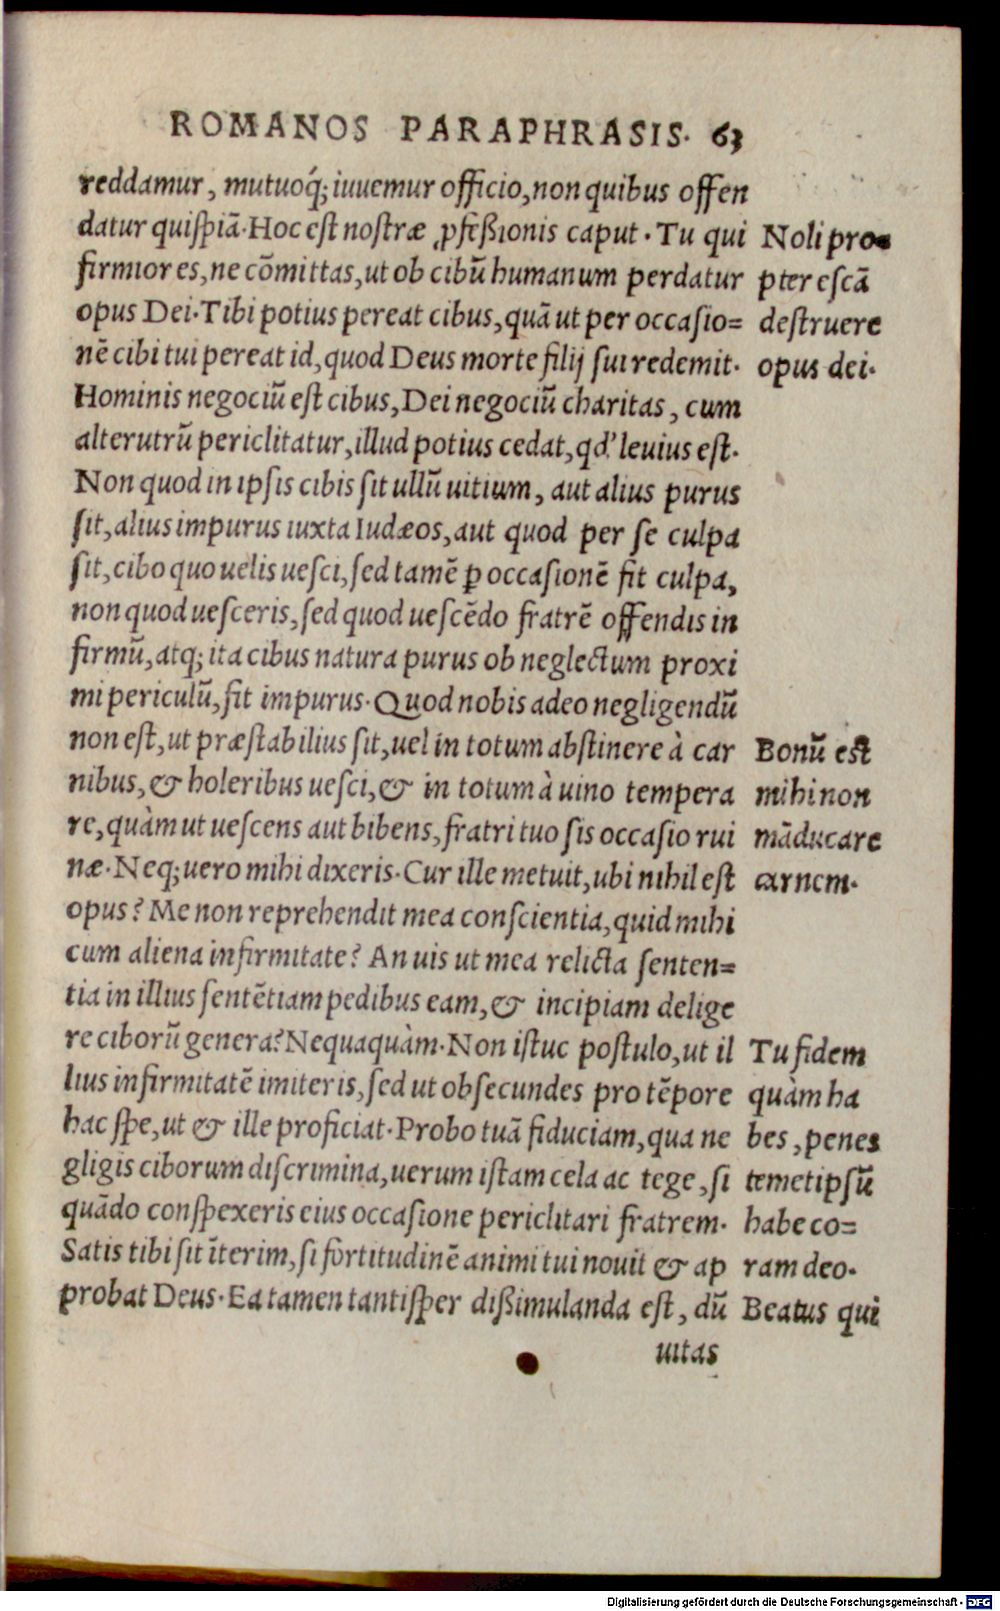 ROMANOS PARAPHRASIS. 63
reddamur, mutuoq́; iuuemur officio, non quibus offen
datur quiſpiā. Hoc eſt noſtræ ꝓfeßionis caput. Tu qui
firmior es, ne cōmittas, ut ob cibū humanum perdatur
opus Dei. Tibi potius pereat cibus, quā ut per occaſio=
nē cibi tui pereat id, quod Deus morte filij ſui redemit.
Hominis negociū eſt cibus, Dei negociū charitas, cum
alterutrū periclitatur, illud potius cedat, qd' leuius eſt.
Non quod in ipſis cibis ſit ullū uitium, aut alius purus
ſit, alius impurus iuxta Iudæos, aut quod per ſe culpa
ſit, cibo quo uelis ueſci, ſed tamē ꝑ occaſionē fit culpa,
non quod ueſceris, ſed quod ueſcēdo fratrē offendis in
firmū, atq; ita cibus natura purus ob neglectum proxi
mi periculū, fit impurus. Quod nobis adeo negligendū
non eſt, ut præſtabilius ſit, uel in totum abſtinere à car
nibus, & holeribus ueſci, & in totum à uino tempera
re, quàm ut ueſcens aut bibens, fratri tuo ſis occaſio rui
næ. Neq; uero mihi dixeris. Cur ille metuit, ubi nihil eſt
opus? Me non reprehendit mea conſcientia, quid mihi
cum aliena infirmitate? An uis ut mea relicta ſenten=
tia in illius ſentētiam pedibus eam, & incipiam delige
re ciborū genera? Nequaquàm. Non iſtuc poſtulo, ut il
lius infirmitatē imiteris, ſed ut obſecundes pro tēpore
hac ſpe, ut & ille proficiat. Probo tuā fiduciam, qua ne
gligis ciborum diſcrimina, uerum iſtam cela ac tege, ſi
quādo conſpexeris eius occaſione periclitari fratrem.
Satis tibi ſit īterim, ſi fortitudinē animi tui nouit & ap
probat Deus. Ea tamen tantiſper dißimulanda eſt, dū
uitas
Noli pro=
pter eſcā
deſtruere
opus dei.
Bonū eſt
mihi non
māducare
carnem.
Tu fidem
quàm ha
bes, penes
temetipſū
habe co=
ram deo.
Beatus qui
Digitalisierung gefördert durch die Deutsche Forschungsgemeinschaft - DFG